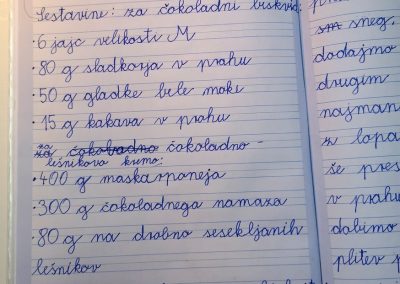 Sestavine: za čokoladni biskvit:
• 6 jajc velikosti M
• 80 g sladkorja v prahu
• 50 g gladke bele moke
• 15 g kakava v prahu
za čokoladno čokoladno -
lešnikovo kremo:
• 400 g maskarponeja
• 300 g čokoladnega namaza
• 80 g na drobno sesekljanih
lešnikov
sm sneg,
dodajmo
drugim
najman
z lopa
še pres
v prahu
dabimo
plitev p